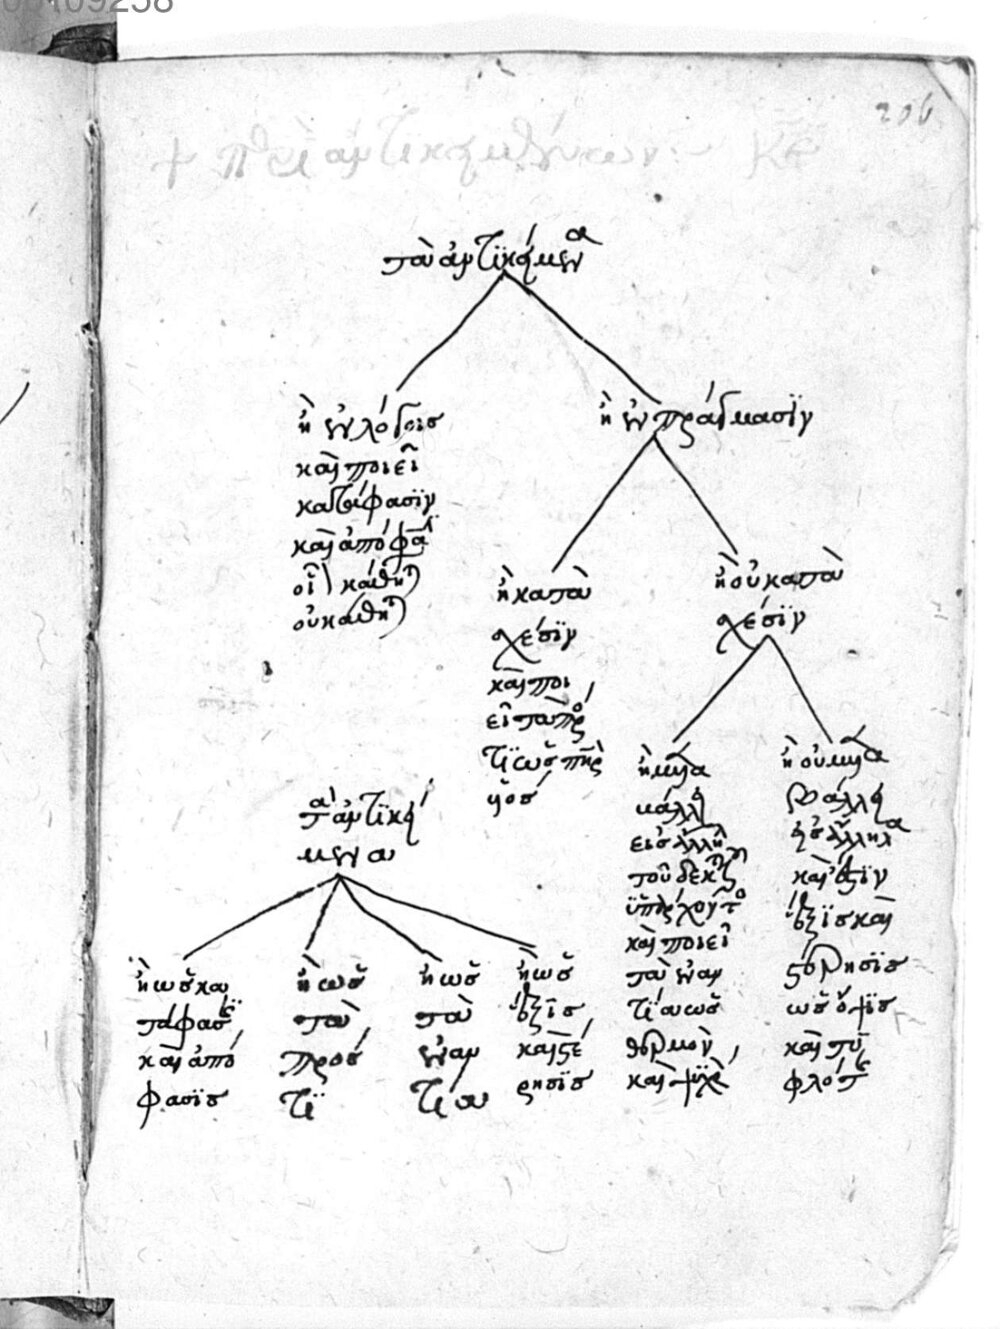 00109258
206
+ περὶ ἀντικειμένων :~ κε
τὰ ἀντικείμενα
ἢ ἐν λόγοις
καὶ ποιεῖ
κατάφασϊν
καὶ ἀπόφα
κάθη
οὐ κάθη
ἢ ἐν πράγμασϊν
ἢ κατὰ
σχέσϊν
καὶ ποι
εῖ τὰ πρό
τϊ ὡς πηρ
υἱός
ἢ οὐ κατὰ
σχέσϊν
ἢ μετα
βάλλει
εἰς ἄλληλα
τοῦ δεκτι
ὑπάρχοντο
καὶ ποιεῖ
τὰ ἐναν
τία ὡς
θερμὸν
καὶ ψϋχρὸ
ἢ οὐ μετα
βάλλει
εἰς ἄλληλα
καὶ ἔστϊν
ἕξϊς καὶ
στέρησϊς
ὡς ὄψϊς
καὶ τυ
φλότ
τὰ ἀντϊκεί
μενα
ἢ ὡς κα
τάφασϊς
καὶ ἀπό
φασϊς
ἢ ὡς
τὰ
πρός
τϊ
ἢ ὡς
τὰ
ἐναν
τία
ἢ ὡς
ἕξϊς
καὶ στέ
ρησϊς